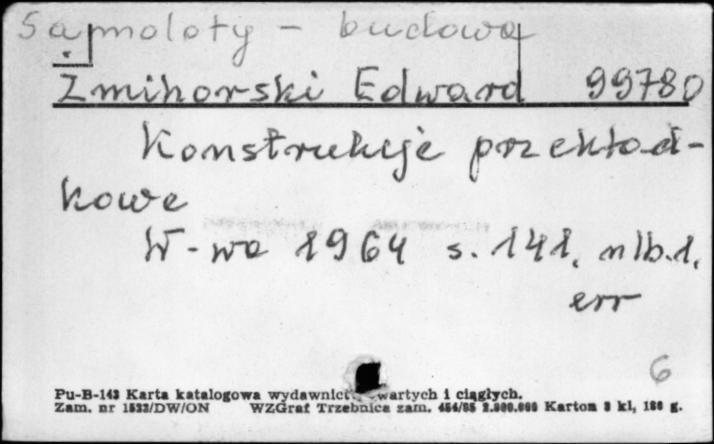 Samoloty - budowa
Żmihorski Edward 99780
Konstrukcje przekład-
kowe
W-wa 1964 s. 141, nlb.1,
err
6
Pu-B-143 Karta katalogowa wydawnictw zwartych i ciągłych.
Zam. nr 1533/DW/ON WZGraf Trzebnica zam. 454/85 2.000.000 Karton 3 kl, 180 g.